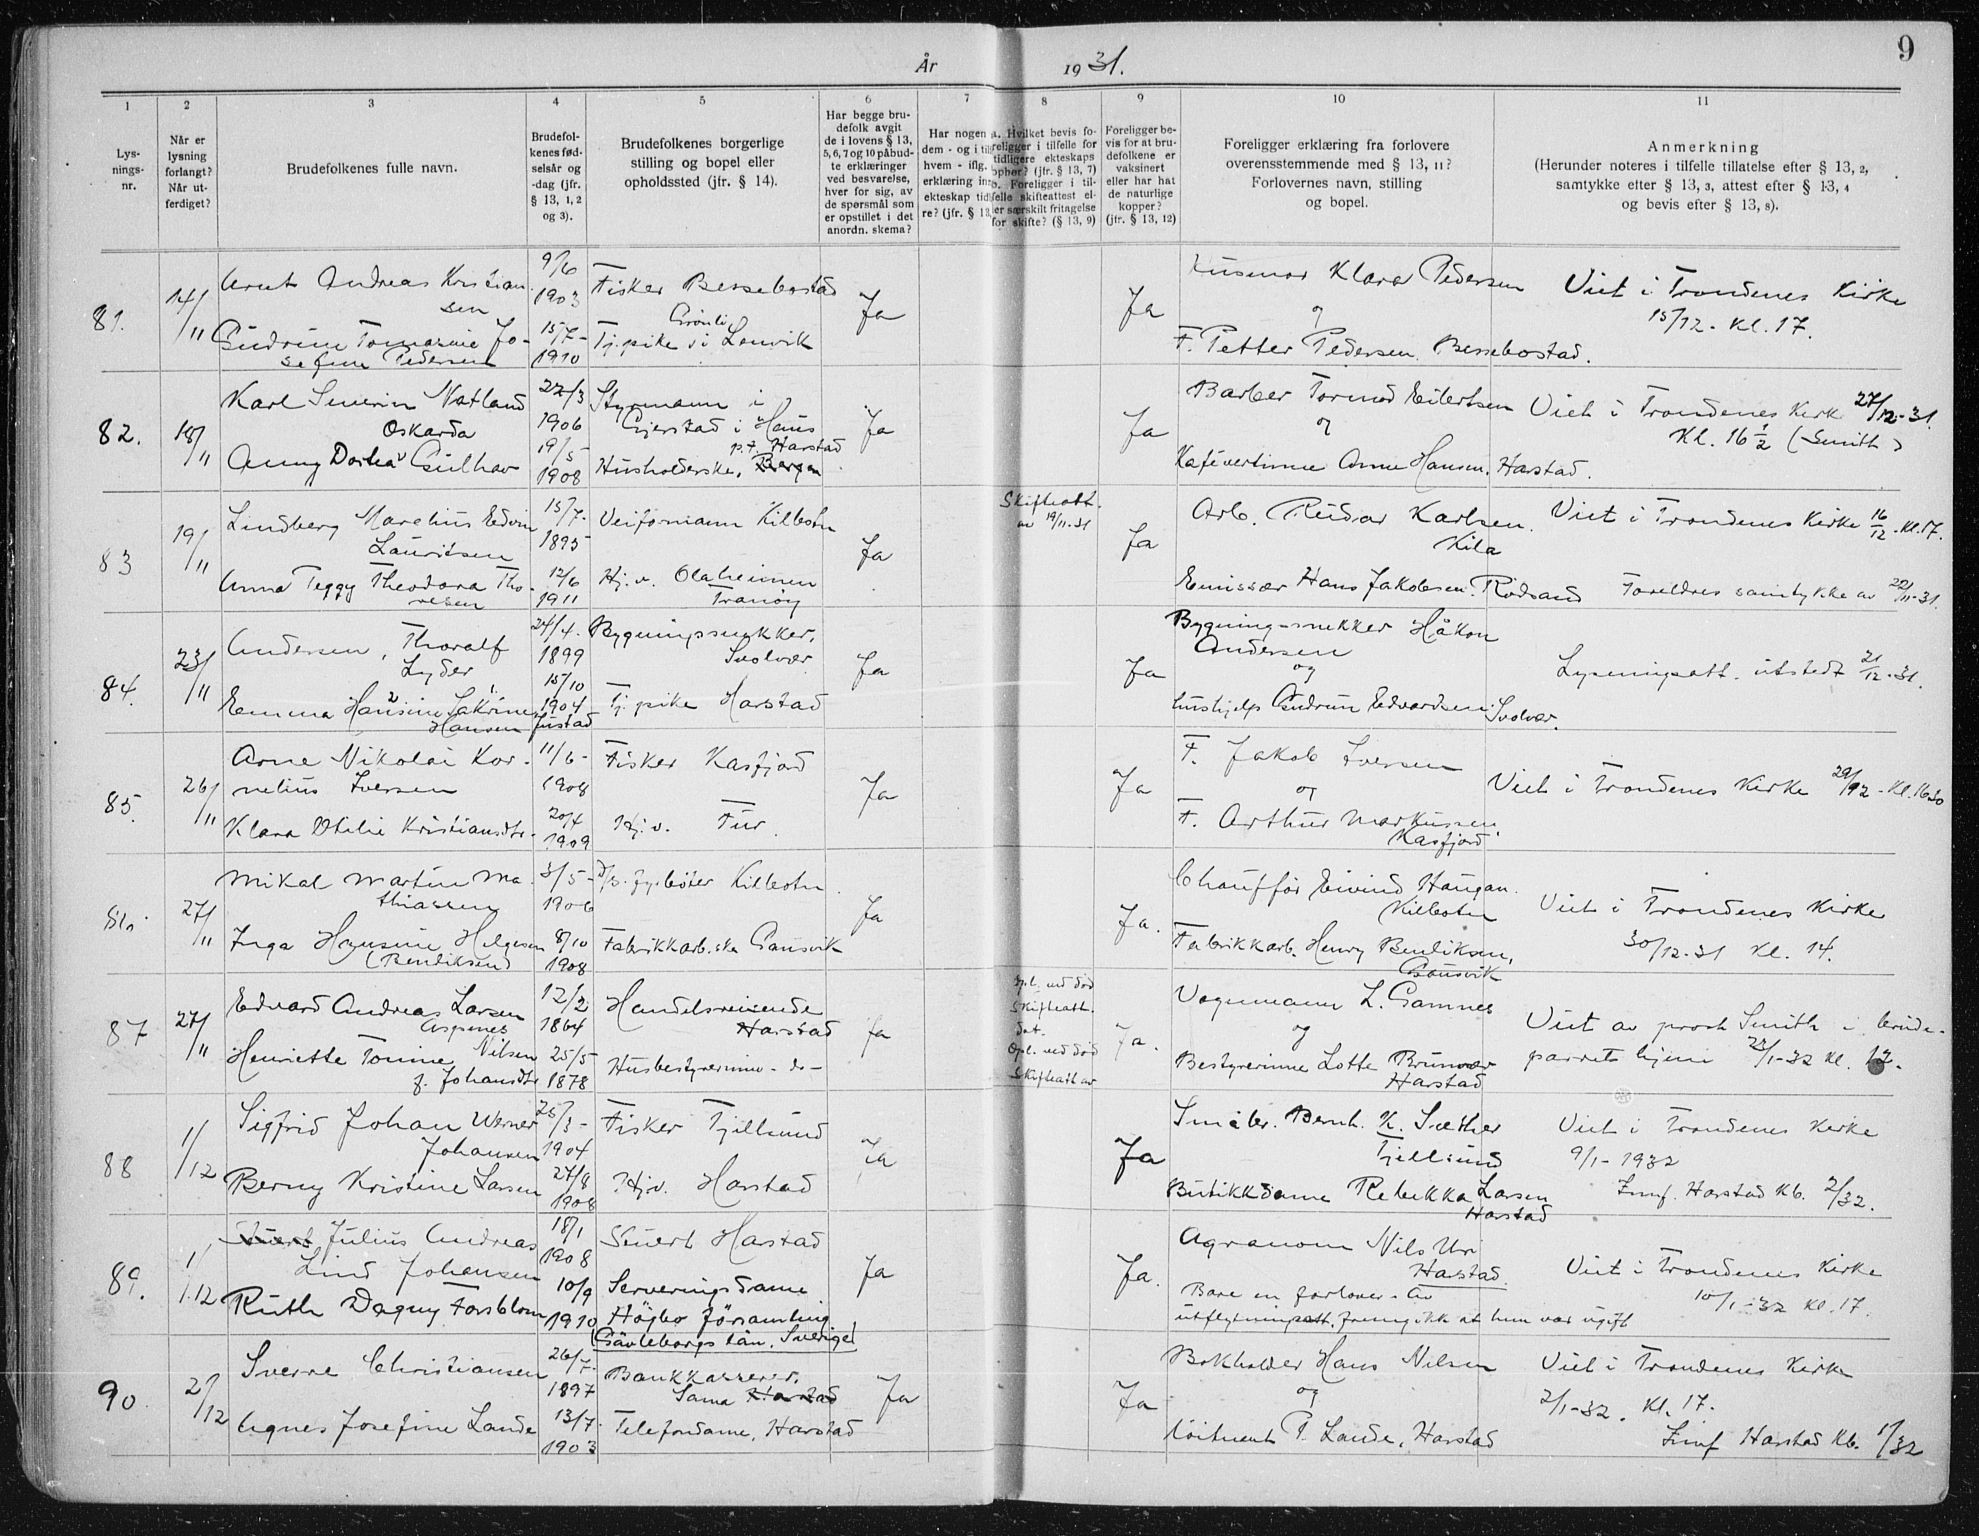 År 1931. 9
1 2 3 4 5 6 7 8 9 10 11
Lys-
nings-
nr.
Når er
lysning
forlangt?
Når ut-
ferdiget?
Brudefolkenes fulle navn.
Brudefol-
kenes fød-
selsår og
-dag (jfr.
§ 13, 1, 2
og 3).
Brudefolkenes borgerlige
stilling og bopel eller
opholdssted (jfr. § 14).
Har begge bru-
defolk avgit
de i lovens § 13,
5, 6, 7 og 10 påbud-
te erklæringer
ved besvarelse,
hver for sig, av
de spørsmål som
er opstillet i det
anordn. skema?
Har nogen a
dem - og i til
hvem - iflg.
erklæring in
ekteskap tid
re? (jfr. § 13,
a. Hvilket bevis fo-
religger i tilfelle for
tidligere ekteskaps
ophør? (jfr. § 13, 7)
b. Foreligger i til-
felle skifteattest el-
er særskilt fritagelse
for skifte? (§ 13, 9)
Foreligger be-
vis for at bru-
defolkene er
vaksinert
eller har hat
de naturlige
kopper?
(jfr. § 13, 12)
Foreligger erklæring fra forlovere
overensstemmende med § 13, 11?
Forlovernes navn, stilling
og bopel.
Anmerkning
(Herunder noteres i tilfelle tillatelse efter § 13, 2,
samtykke efter § 13, 3, attest efter § 13, 4
og bevis efter § 13, 8).
81. 14/11
Arnt Andreas Kristian
sen
9/6
1903
Fisker Bessebostad
Ja
Ja
Husmor Klara Pedersen
og
F. Petter Pedersen. Bessebostad.
Viet i Trondenes Kirke
15/12 - Kl. 17.
Gudrun Tomasine Jo-
sefine Pedersen
15/7-
1910
Grønli
Tj.pike i Lonvik
82. 18/11
Karl Severin Natland
Oskarda
22/3
1906
Styrmann i
Gjerstad i Haus
p.t. Harstad
Ja
Ja
Barber Tormod Eilertsen
og
Kafévertinne Anne Hansen, Harstad.
Viet i Trondenes Kirke 27/12-31.
Kl. 16 1/2 (Smith)
Anny Dorthea Gulhav
19/5-
1908
Husholderske, Bergen
83 19/11
Lindberg Marelius Edvin
Lauritsen
15/7-
1895
Veiformann Kilbotn
Ja
Skifteatt.
av 19/11-31
Ja
Arb. Reidar Karlsen.
Kila
Emissær Hans Jakobsen. Rødsand
Viet i Trondenes Kirke 16/12. Kl. 17.
Foreldres samtykke av 22/11-31.
Anna Peggy Theodora Tho-
resen
12/6
1911
Hj.v. Olaheimen
Tranøy
84. 23/11
Andersen, Thoralf
Lyder
24/4.
1899
Bygningssnekker,
Svolvær
Ja
Ja
Bygningssnekker Håkon
Andersen
og
hushjelp Gudrun Edvardsen. Svolvær.
Lysningsatt. utstedt 21/12-31.
Emma Hansine Sakrine
Hansen Justad
15/10
1904
Tj.pike Harstad
85. 26/11
Arne Nikolai Kor-
nelius Iversen
11/6-
1908
Fisker Kasfjord
Ja
Ja
F. Jakob Iversen
og
F. Arthur Markussen
Kasfjord
Viet i Trondenes Kirke 29/12 - Kl. 16.30
Klara Otelie Kristiansdtr.
20/4
1909
Hj.v. Fur.
86. 27/11
Mikal Martin Ma
thiassen
3/5-
1906
D/S. fyrbøter Kilbotn
Ja
Ja.
Chauffør Eivind Haugan.
Kilbotn
Fabrikkarb. Henry Bendiksen,
Gausvik
Viet i Trondenes Kirke
30/12-31 Kl. 14.
Inga Hansine Helgesen
(Bendiksen)
8/10
1908
Fabrikkarb.ske Gausvik
87 27/11
Edvard Andreas Larsen
Aspenes
12/2
1864
Handelsreisende
Harstad
Ja
Opl. ved død
Skifteatt.
dat.
Opl. ved død
Skifteatt av
Ja.
Vognmann L. Gamnes
og
Bestyrerinne Lotte Brunvær
Harstad
Viet av prost Smith i brude-
parrets hjem 23/1-32 Kl. 17.
Henriette Tomine Nilsen
f. Johansdtr
25/5
1878
Husbestyrerinne - do -
88 1/12
Sigfrid Johan Werner
Johansen
25/3-
1904
Fisker Tjellsund
Ja
Ja
Småbr. Bernh. K. Sæther
Tjellsund
Butikkdame Rebekka Larsen
Harstad
Viet i Trondenes Kirke
9/1-1932
Innf. Harstad Kb. 2/32.
Berny Kristine Larsen
27/8
1908
Hj.v. Harstad
89. 1/12
Julius Andreas
Lind Johansen
18/1
1908
Stuert Harstad
Ja
Ja.
Agronom Nils Uri
Harstad.
Bare en forlover. Av
utflytningsatt. fremgikk at hun var ugift
Viet i Trondenes Kirke
10/1-32 Kl. 17.
Ruth Dagny Forsblom
10/9
1910
Serveringsdame.
Högbo församling
(Gävleborgs län. Sverige)
90. 2/12
Sverre Christiansen
26/7-
1897
Bankkasserer.
Sama Harstad
Ja
Ja
Bokholder Hans Nilsen
og
løitnent P. Lande, Harstad
Viet i Trondenes Kirke
2/1-32. Kl. 17.
Innf Harstad Kb. 1/32
Agnes Josefine Lande
13/7.
1903
Telefondame, Harstad